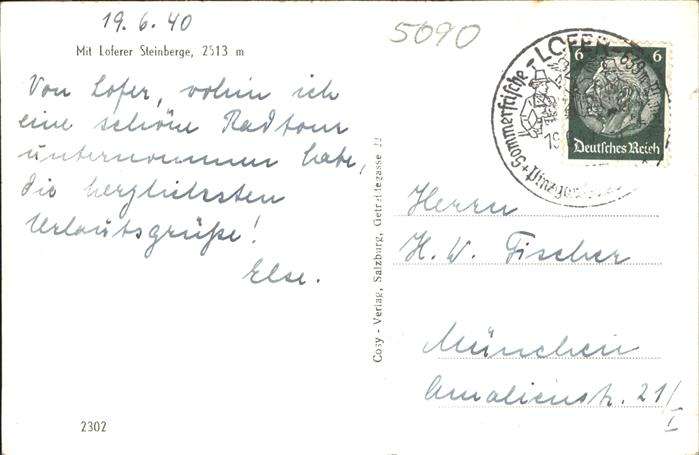 19.6.40
Mit Loferer Steinberge, 2513 m
Von Lofer, wohin ich
eine schöne Radtour
unternommen habe,
die herzlichsten
Urlaubsgrüße!
Else.
2302
Cosy - Verlag, Salzburg, Getreidegasse 22
5090
LOFER 639 m
Sommerfrische
6 6
Deutsches Reich
Herrn
H. W. Fischer
München
Amalienstr. 21/I